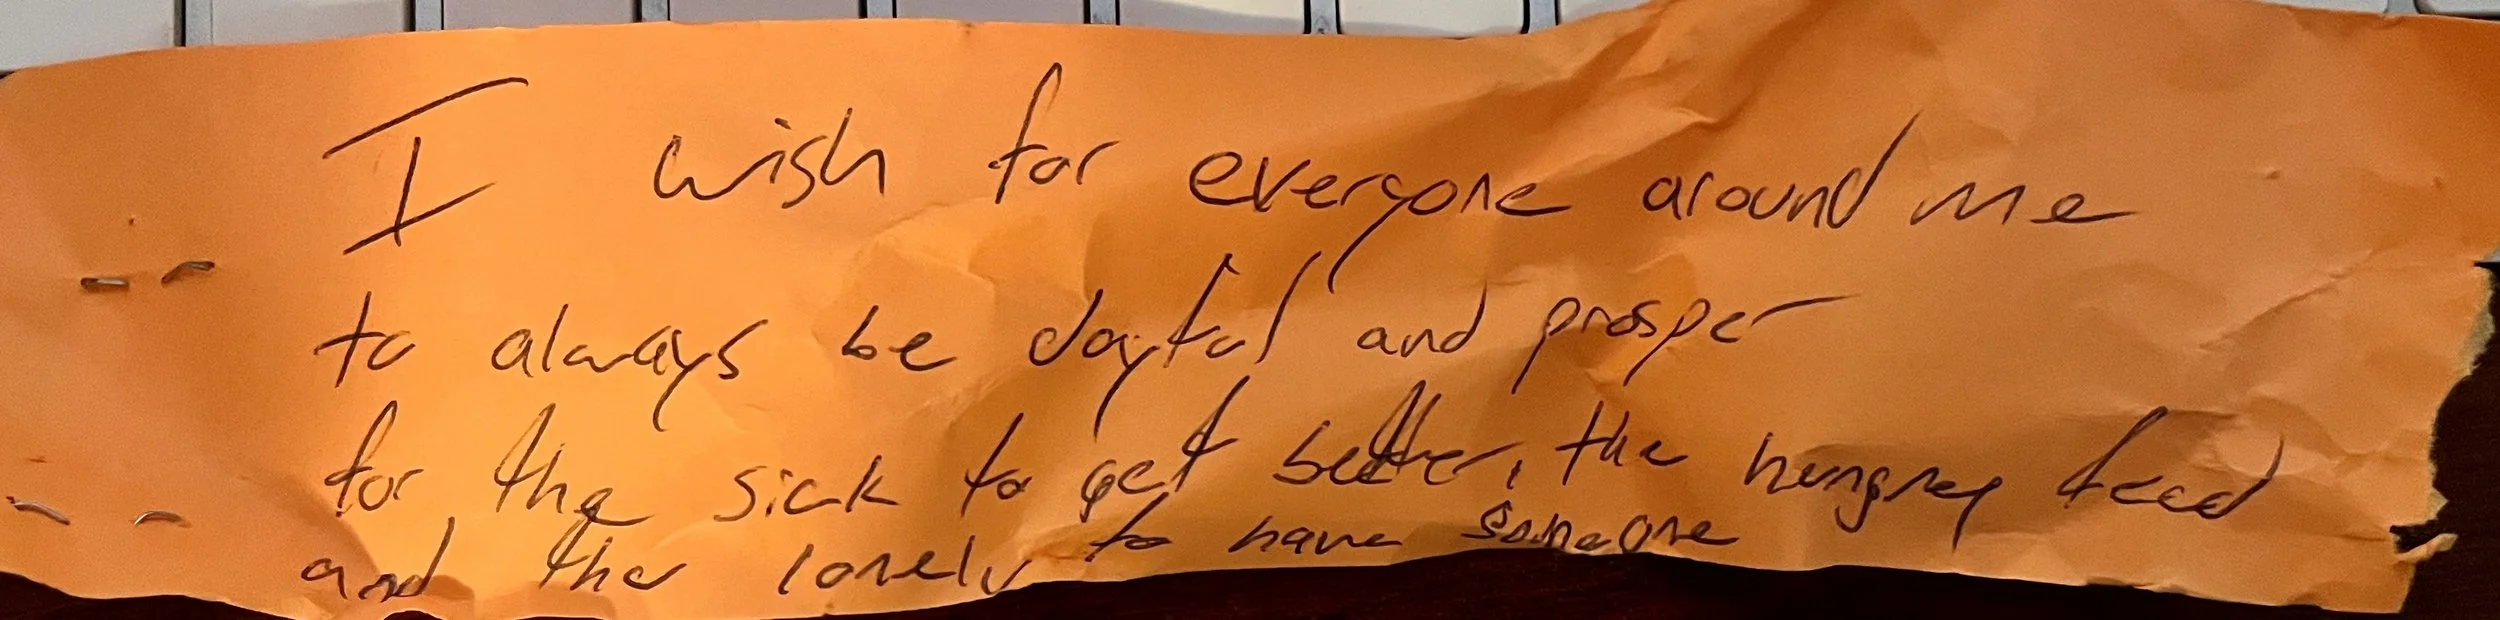 I wish for everyone around me
to always be joyful and prosper
for the sick to get better, the hungrey feed
and the lonely to have someone